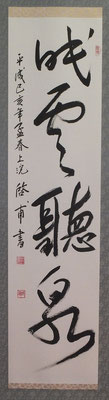 眺雲聽泉
平成己亥年孟春上浣 啓甫書